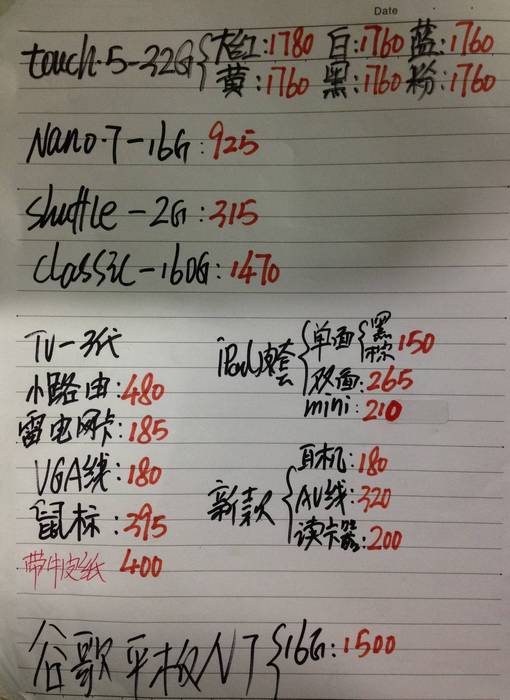 Date
touch·5-32G{大红:1780 白:1760 蓝:1760
黄:1760 黑:1760 粉:1760
Nano·7-16G:925
shuffle-2G:315
classic-160G:1470
TV-3代
小路由:480
雷电网卡:185
VGA线:180
鼠标:395
带牛皮纸 400
iPad皮套{单面{黑 棕 150
双面:265
mini:210
新款{耳机:180
AV线:320
读卡器:200
谷歌平板N7{16G:1500